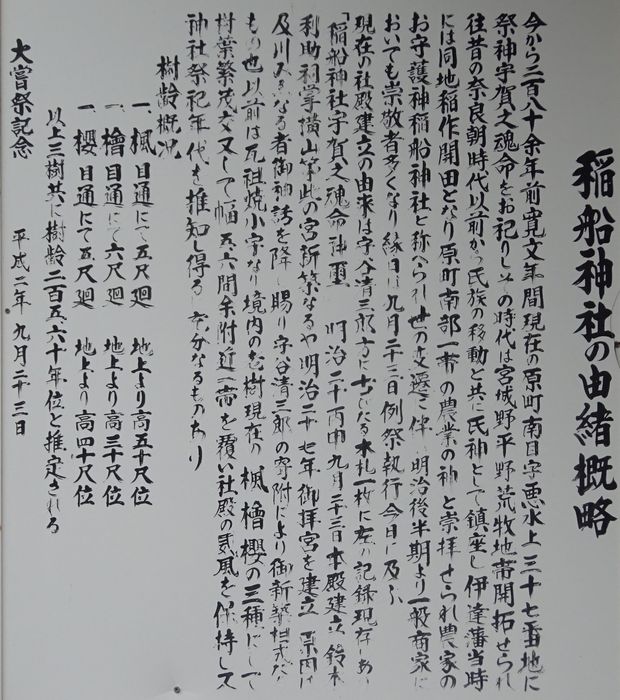 稲船神社の由緒概略
今から二百八十余年前寛文年間現在の原町南目字悪水上三十七番地に
祭神宇賀之魂命をお祀りしその時代は宮城野平野荒牧地帯開拓せられ
往昔の奈良朝時代以前から民族の移動と共に民神として鎮座し伊達藩当時
には同地稲作開田となり原町南部一帯の農業の神と崇拝せられ農家の
お守護神稲船神社と称へられ世の変遷に伴 明治後半期より一般商家に
おいても崇敬者多くなり縁日は九月二十三日例祭執行今日に及ふ
現在の社殿建立の由来は守谷清三郎方に 木札一枚に左の記録現存しあり
「稲船神社宇賀之魂命神璽 明治二十 丙申九月二十三日本殿建立 鈴木
利助 横山 此の宮新築なるや明治二十七年御拝宮を建立
及川 なる者御神 を降し賜り守谷清三郎の寄附により御新築
もの也以前は瓦祖焼小宇なり境内の老樹現在の楓檜櫻の三種にして
樹葉繁茂交叉して幅五六間余附近一帯を覆い社殿の 風を保持して
神社祭祀年代も推知し得る 充分なるものあり
樹齢概況
一、楓 目通にて五尺廻 地上より高五十尺位
一、檜 目通にて六尺廻 地上より高三十尺位
一、櫻 目通にて五尺廻 地上より高四十尺位
以上三樹共に樹齢二百五六十年位と推定される
大嘗祭記念 平成二年九月二十三日